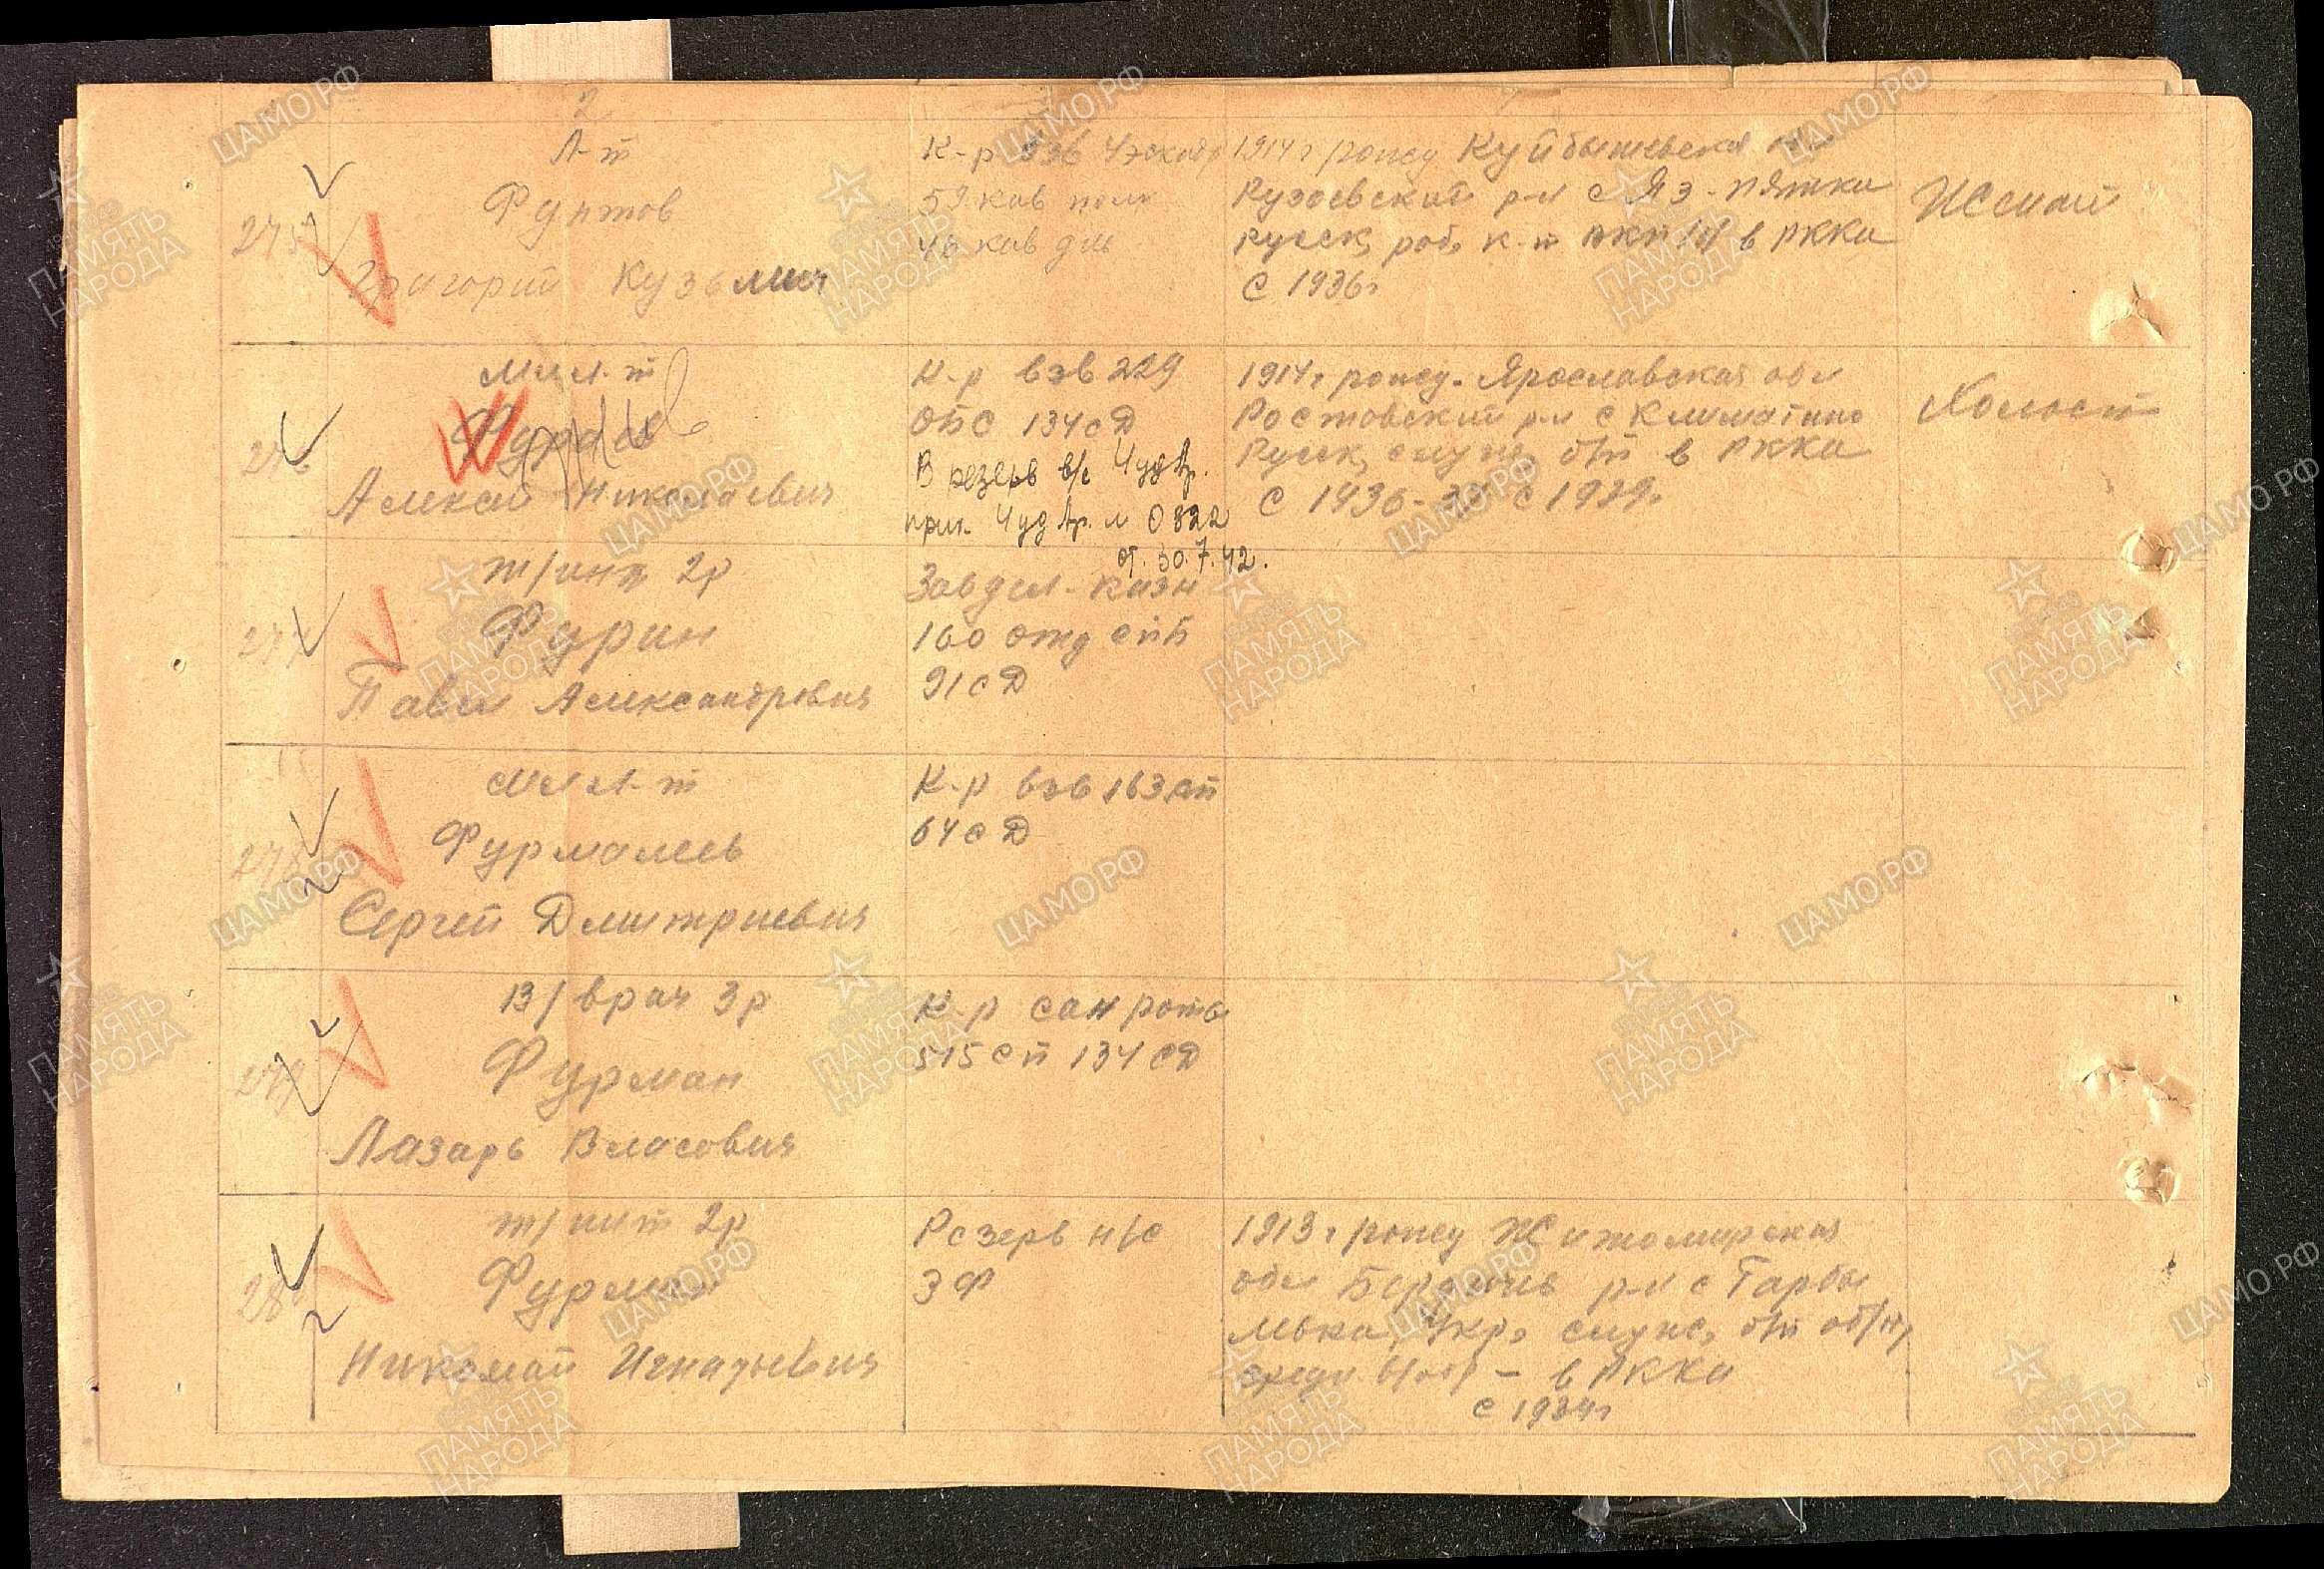 2
275
Л-т
Фунтов
Григорий Кузьмич
К-р взв 4 эскадр
59 кав полк
46 кав див
1914 г Куйбышевская обл
Кузоевский р-н с Яз-Пятки
русск, раб, к-т ВКП/б/ в РККА
с 1936г
Женат
276
Мл л-т
Алексей Николаевич
К-р взв 229
ОБС 134 СД
В резерв в/с
0822
от 30.7.42.
1914 г Ярославская обл
Ростовский р-н с Климатино
Русск, служ, б/п в РККА
с 1936- с 1939г
Холост
277
т/инт 2р
Фурин
Павел Александрович
Завдел-казн
160 отд
91 СД
278
Мл л-т
Фурмалеев
Сергей Дмитриевич
К-р взв 163 сп
64 СД
279
В/врач 3р
Фурман
Лазарь Власович
К-р сан роты
515 сп 134 СД
280
т/инт 2р
Фурман
Николай Игнатьевич
Резерв н/с
ЗФ
1913 г Житомирская
обл Бердичев р-н с Гарбы
Укр, служ, б/п
в РККА
с 1934г
ЦАМО.РФ
ПАМЯТЬ
НАРОДА